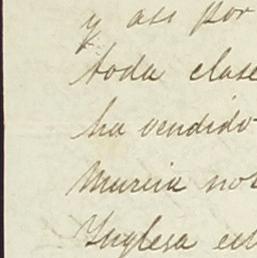 y asi por
toda clase
ha vendido
Murcia not
Ynglesa en